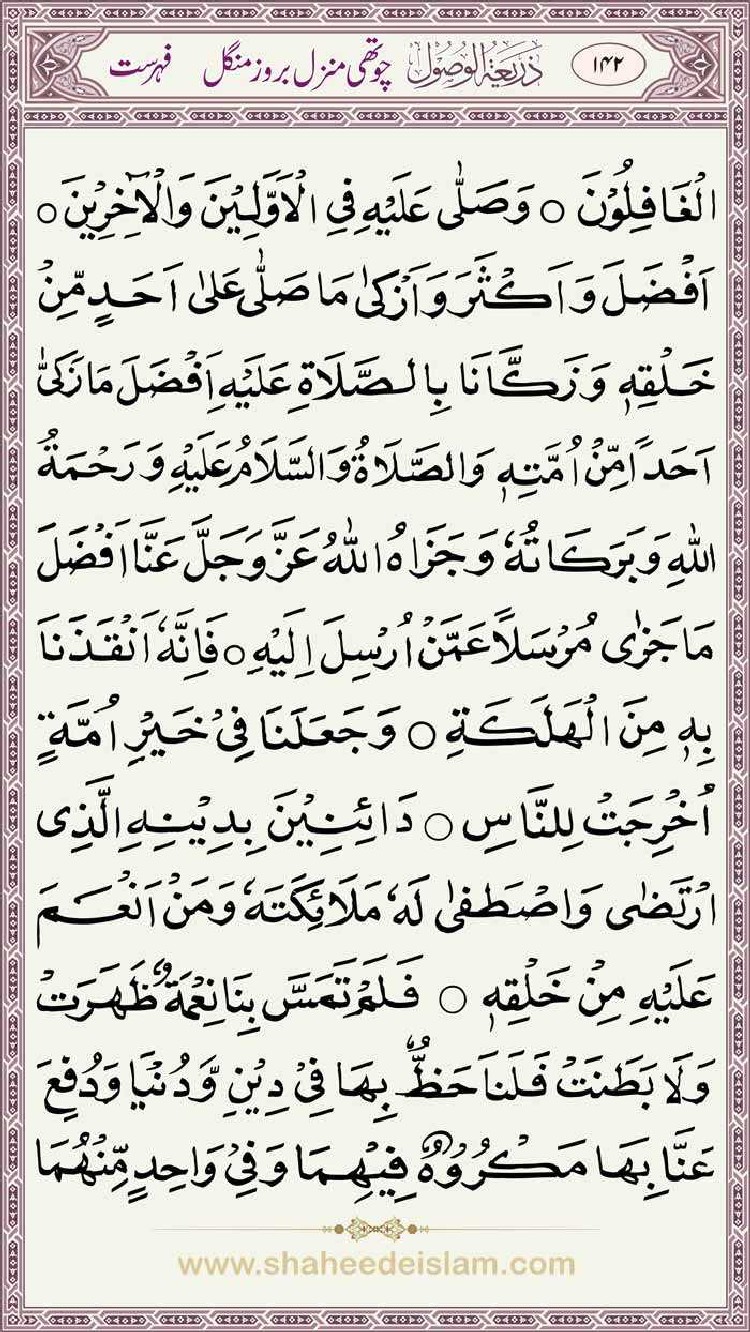 ۱۴۲ ذَرِیعَۃُ الوُصُول چوتھی منزل بروز منگل فہرست
الْغَافِلُوْنَ ○ وَصَلّٰى عَلَيْهِ فِى الْاَوَّلِيْنَ وَالْاٰخِرِيْنَ ○
اَفْضَلَ وَاَكْثَرَ وَاَزْكٰى مَا صَلّٰى عَلٰى اَحَدٍ مِّنْ
خَلْقِهٖ وَزَكَّانَا بِالصَّلَاةِ عَلَيْهِ اَفْضَلَ مَا زَكّٰى
اَحَدًا مِّنْ اُمَّتِهٖ وَالصَّلَاةُ وَالسَّلَامُ عَلَيْهِ وَرَحْمَةُ
اللّٰهِ وَبَرَكَاتُهٗ وَجَزَاهُ اللّٰهُ عَزَّوَجَلَّ عَنَّا اَفْضَلَ
مَا جَزٰى مُرْسَلًا عَمَّنْ اُرْسِلَ اِلَيْهِ ○ فَاِنَّهٗ اَنْقَذَنَا
بِهٖ مِنَ الْهَلَكَةِ ○ وَجَعَلَنَا فِىْ خَيْرِ اُمَّةٍ
اُخْرِجَتْ لِلنَّاسِ ○ دَائِنِيْنَ بِدِيْنِهِ الَّذِى
ارْتَضٰى وَاصْطَفٰى لَهٗ مَلَائِكَتَهٗ وَمَنْ اَنْعَمَ
عَلَيْهِ مِنْ خَلْقِهٖ ○ فَلَمْ تَمَسَّ بِنَا نِعْمَةٌ ظَهَرَتْ
وَلَا بَطَنَتْ فَلَنَا حَظٌّ بِهَا فِىْ دِيْنٍ وَّدُنْيَا وَدُفِعَ
عَنَّا بِهَا مَكْرُوْهٌ فِيْهِمَا وَفِىْ وَاحِدٍ مِّنْهُمَا
www.shaheedeislam.com